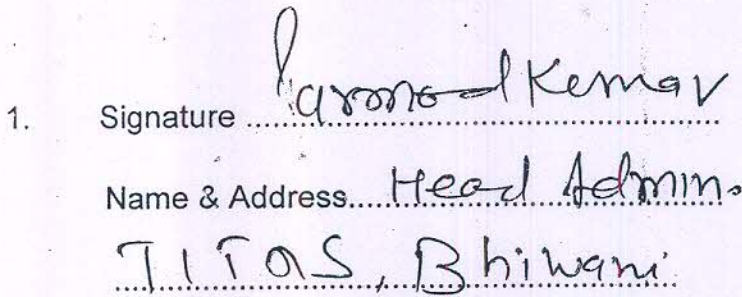 1. Signature ........Parmod Kumar........
Name & Address....Head Admn.
TITOS, Bhiwani